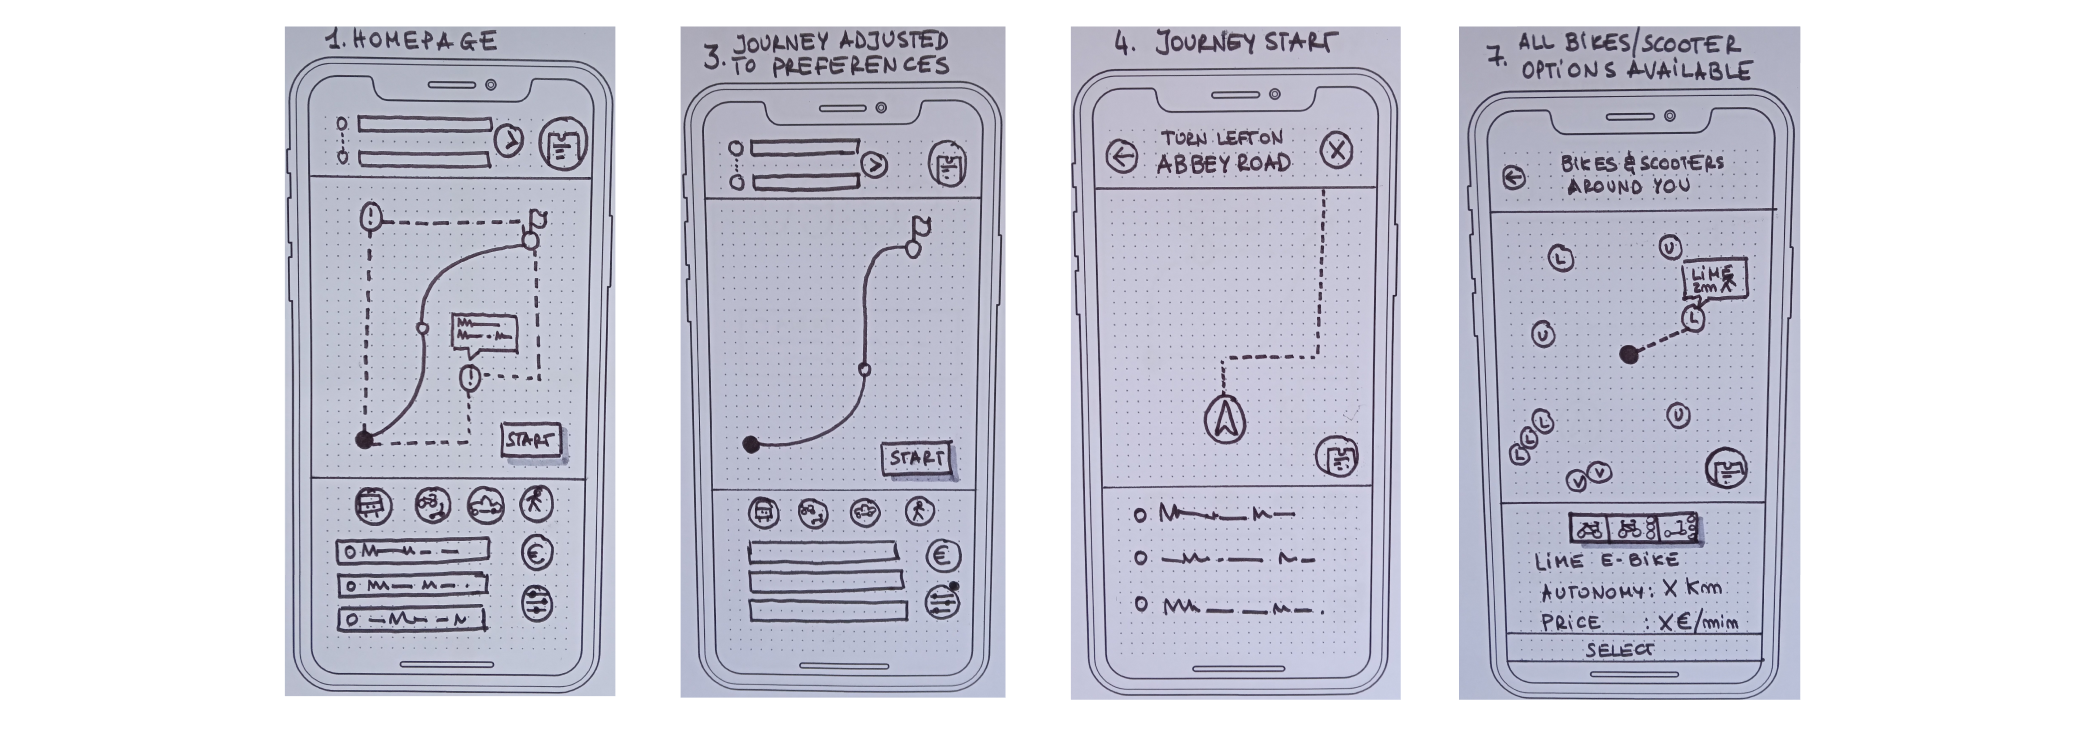 1. HOMEPAGE
START
€
3. JOURNEY ADJUSTED
TO PREFERENCES
START
€
4. JOURNEY START
TURN LEFT ON
ABBEY ROAD
7. ALL BIKES/SCOOTER
OPTIONS AVAILABLE
BIKES & SCOOTERS
AROUND YOU
L
U
LIME
2m
L
U
U
L
L
L
V
V
LIME E-BIKE
AUTONOMY: X Km
PRICE : X€/min
SELECT